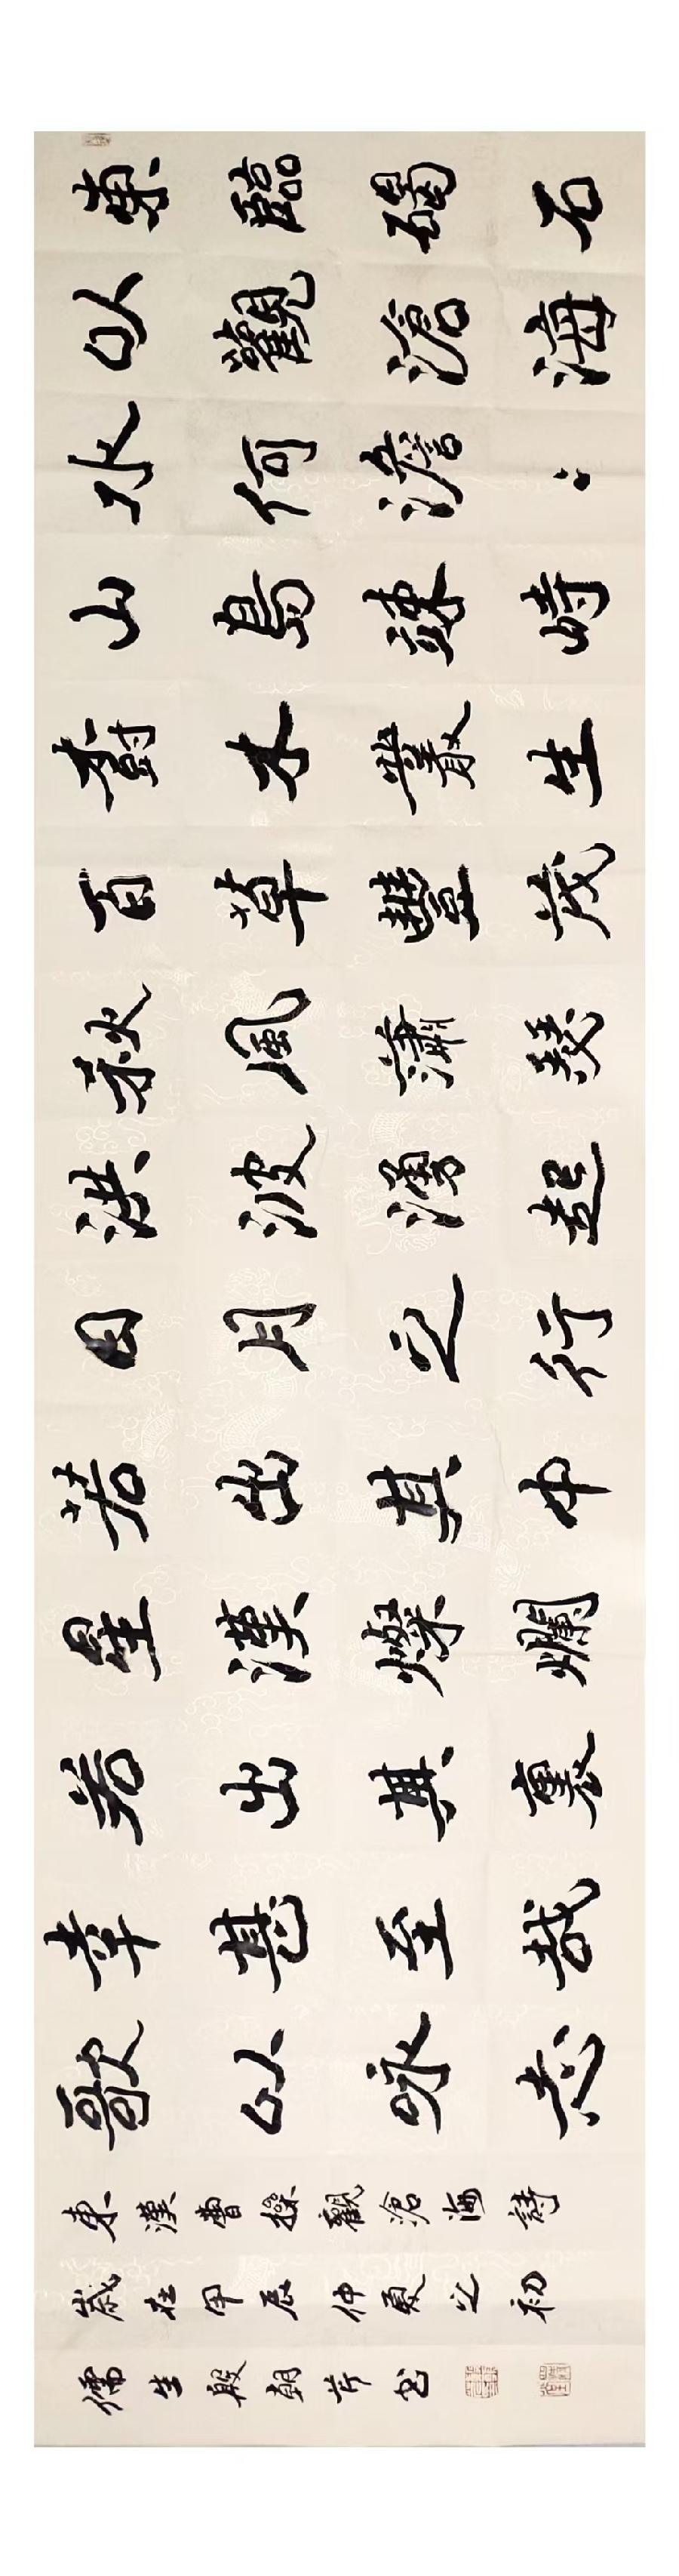 東臨碣石
以觀滄海
水何澹〻
山島竦峙
樹木叢生
百草豐茂
秋風瀟瑟
洪波湧起
日月之行
若出其中
星漢燦爛
若出其裏
幸甚至哉
歌以咏志
東漢曹操觀滄海詩
歲在甲辰仲夏之初
儒生殷朝芹书